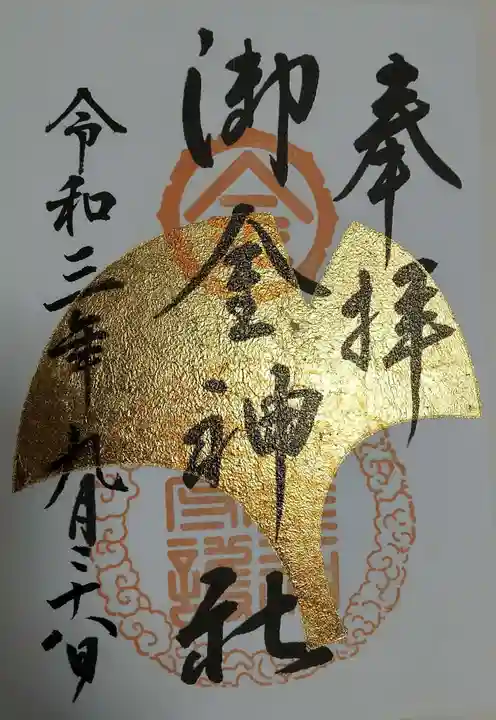 奉拝
御金神社
令和三年九月二十八日